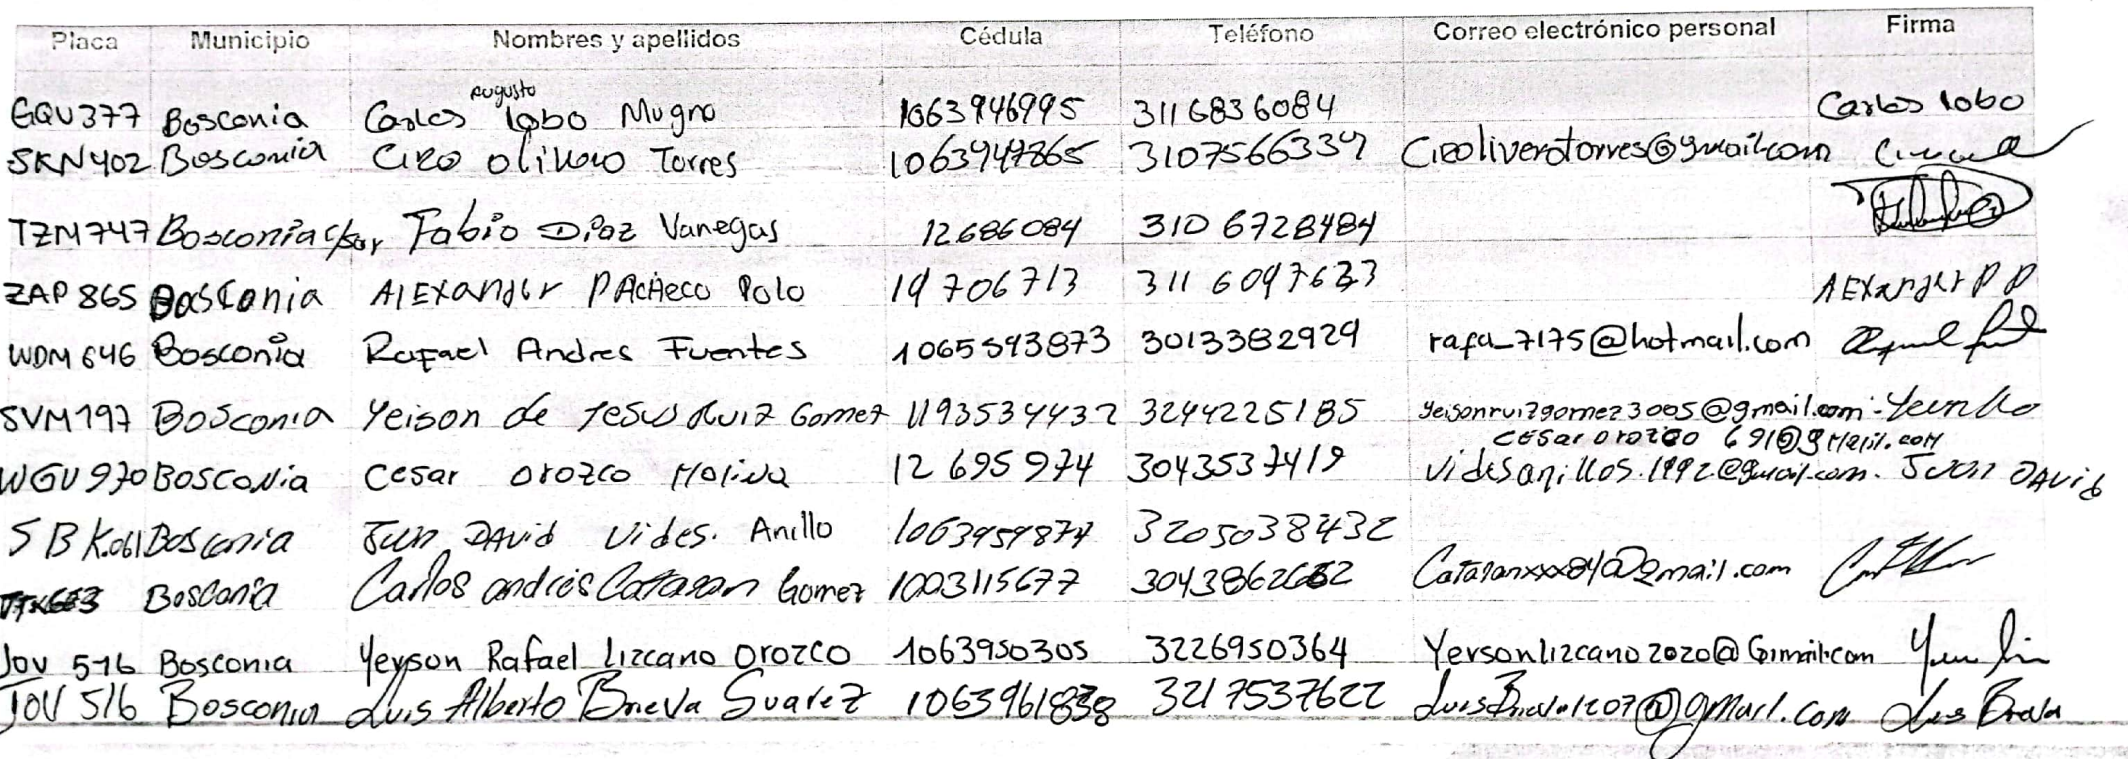 Placa Municipio Nombres y apellidos Cédula Teléfono Correo electrónico personal Firma
GQU377 Bosconia Carlos Augusto lobo Mugno 1063946995 3116836084 Carlos lobo
SKN402 Bosconia Ciro olivero Torres 1063947865 3107566339 Ciroliverotorres@gmail.com
TZM747 Bosconia c/sar Fabio Diaz Vanegas 12686084 310 6728484
ZAP 865 Bosconia AlExander PAcHeco Polo 19 706713 311 6097633 AExander P P
WDM 646 Bosconia Rafael Andres Fuentes 1065593873 3013382929 rafa_7175@hotmail.com
SVM197 Bosconia Yeison de Jesus Ruiz Gomez 1193534432 3244225185 yeisonruizgomez3005@gmail.com
cesar orozco 691@gmail.com
WGU970 Bosconia Cesar Orozco Molina 12 695 974 3043537419 videsanillos.1992@gmail.com. Juan DAvid
SBK061 Bosconia Juan DAvid Vides. Anillo 1063959874 3205038432
Bosconia Carlos andrés Catalan Gomez 1003115677 3043862662 Catalanxxx84@gmail.com
Jov 516 Bosconia Yeyson Rafael lizcano orozco 1063950305 3226950364 Yeysonlizcano2020@Gimail.com
JOV 516 Bosconia Luis Alberto Brieva Suarez 1063961838 3217537622 LuisBrieva1207@gmail.com Luis Brieva